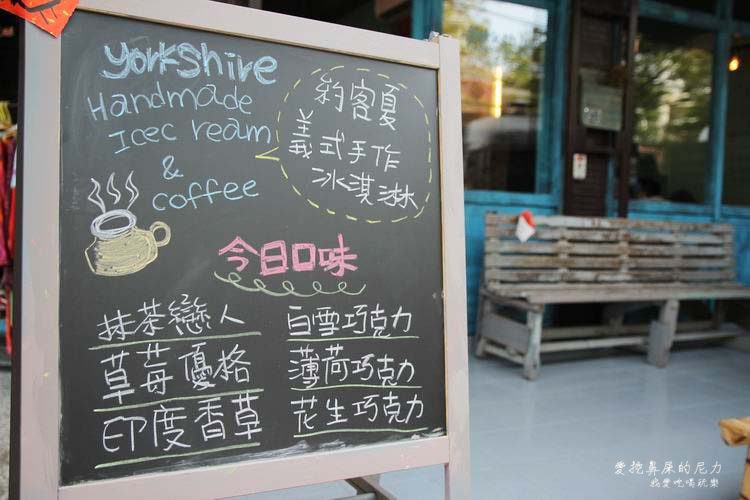 Yorkshire
Handmade
Icec ream
&
coffee
約客夏
義式手作
冰淇淋
今日口味
抹茶戀人
草莓優格
印度香草
白雪巧克力
薄荷巧克力
花生巧克力
愛挖鼻屎的尼力
我愛吃喝玩樂